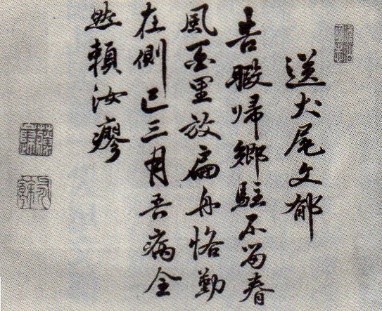 送犬尾文郁
告暇帰郷駐不留春
風百里放扁舟恪勤
在側已三月吾病全
然頼汝瘳